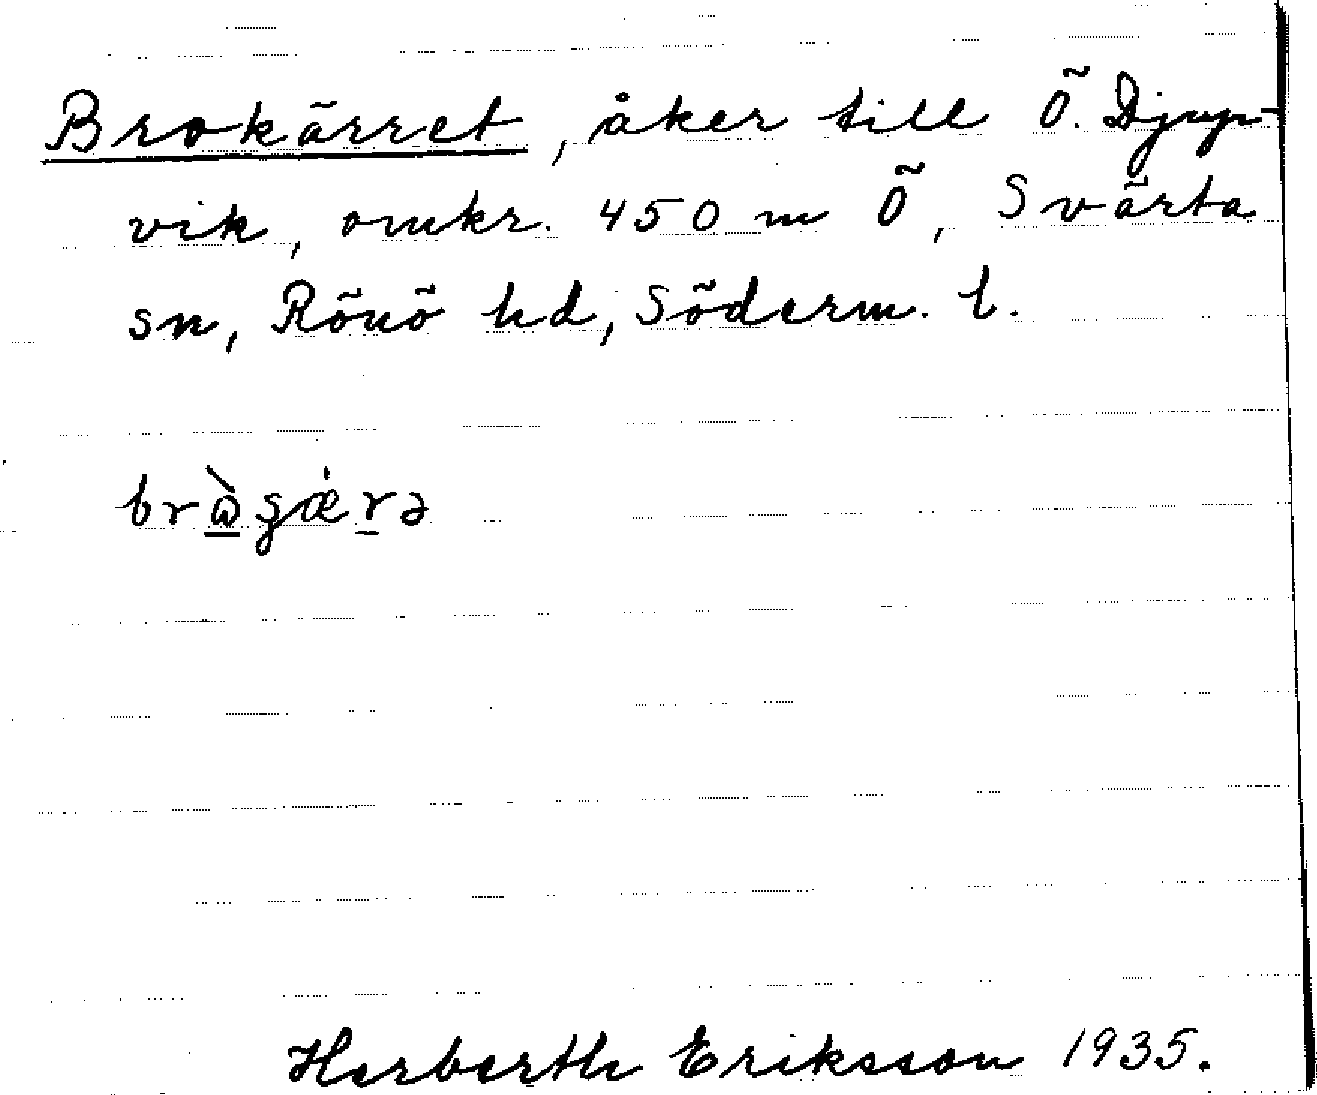 Brokärret, åker till Ö. Djup-
vik, omkr. 450 m Ö, Svärta
sn, Rönö hd, Söderm. l.
brὼgǽrə
Herberth Eriksson 1935.